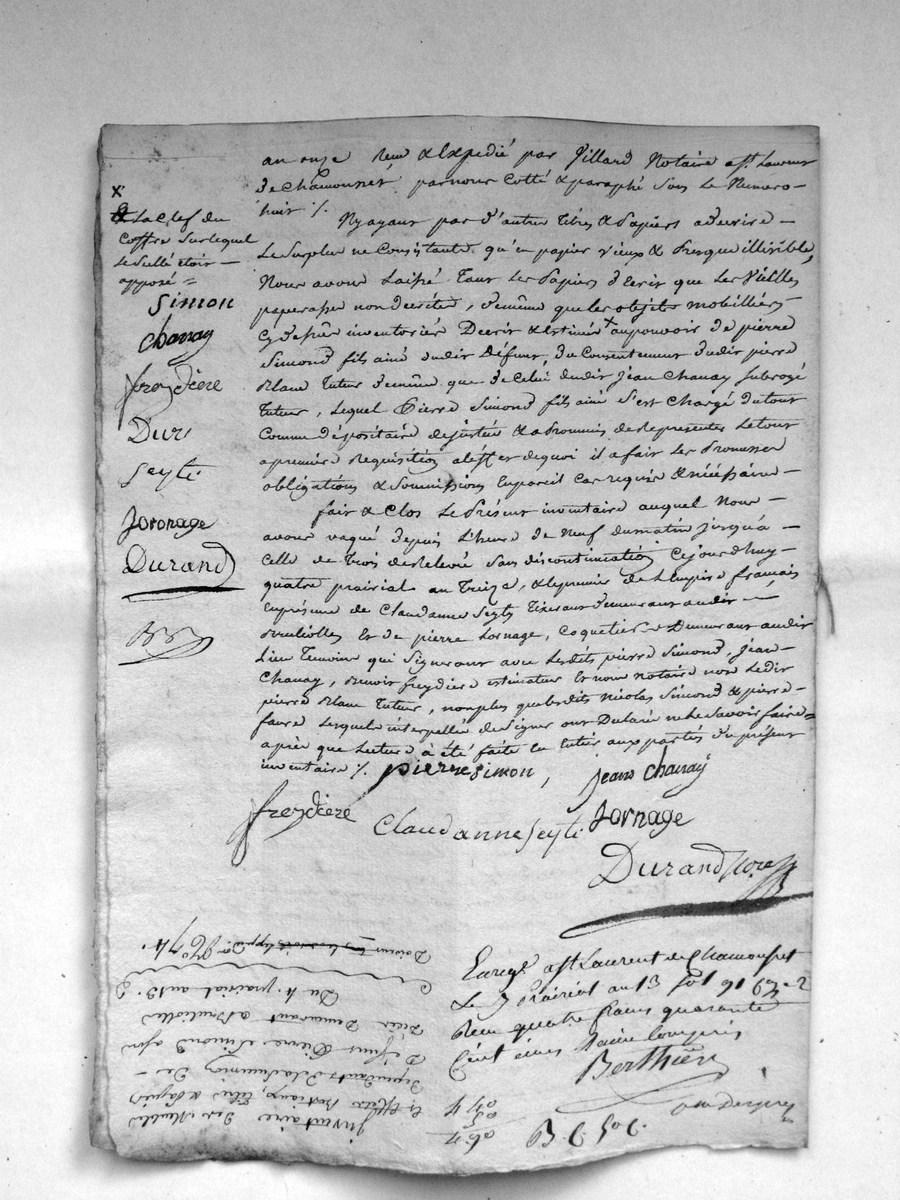 an onze Reçu & Expedié par Villard Notaire a st. Laurent
de chamousset par nous Cotté & paraphé sous Le Numero
huit ./.
Ny ayant pas d'autres titres & Papiers a decrire
Le surplus ne Consistant qu'en papier vieux & Presque illisible,
Nous avons Laissé Tant Les Papiers decrit que Les Vieilles
paperasse non decrites, de même que les objets mobilliers
Cy dessus inventoriés Decrit & Estimés x au pouvoir de pierre
Simond fils ainé dudit Défunt, du Consentement dudit pierre
Blanc tuteur de même que de Celui dudit Jean Chanay subrogé
tuteur, Lequel Pierre Simond fils ainé s'est Chargé du tout
Comme dépositaire de justice & a Promis de Representer Le tout
a premiere Requisition a l'effet de quoi il a fait Les Promesses
obligations & soumissions En pareil Cas requis & nécéssaire
fait & Clos Le Présent inventaire auquel Nous
avons vaqué depuis L'heure de Neuf du matin jusqu'a
Celle de trois de Relevée sans discontinuation Cejourd'huy
quatre prairial an treize, & le premier de L'Empire français
En présence de Claudanne Seyti tixerant demeurant audit
Bruliolles Et de pierre Jornage, Coquetier Demeurant audit
Lieu temoins qui signeront avec Lesdits pierre Simond, Jean
Chanay, Benoit freydiere estimateur Et nous notaire non Ledit
pierre Blanc tuteur, non plus que Lesdits Nicolas Simond & pierre
faure Lesquels interpellés de signer ont Déclaré ne Le savoir faire
après que Lecture a été faite En Entier aux parties du présent
inventaire ./. pierre simon,
jean chanay
freydiere
Claudanne Seyti
Jornage
Durand Nore
x
& La Clef du
Coffre sur lequel
Le scellé étoit
apposé =
simon
chanay
freydiere
Dur
seyti
Jornage
Durand
Enregé. a st Laurent de Chamousset
Le 7 Prairial an 13 fol 91
Reçu quatre francs quarante
Cent imes
Berthier
Inventaire des Meubles
Et Effets Bestiaux, titres & Papiers
dependants de la succession de
Défunt Pierre Simond a son
Décès Demeurant a Brulliolles
Du 4. prairial an 13.
No 74.